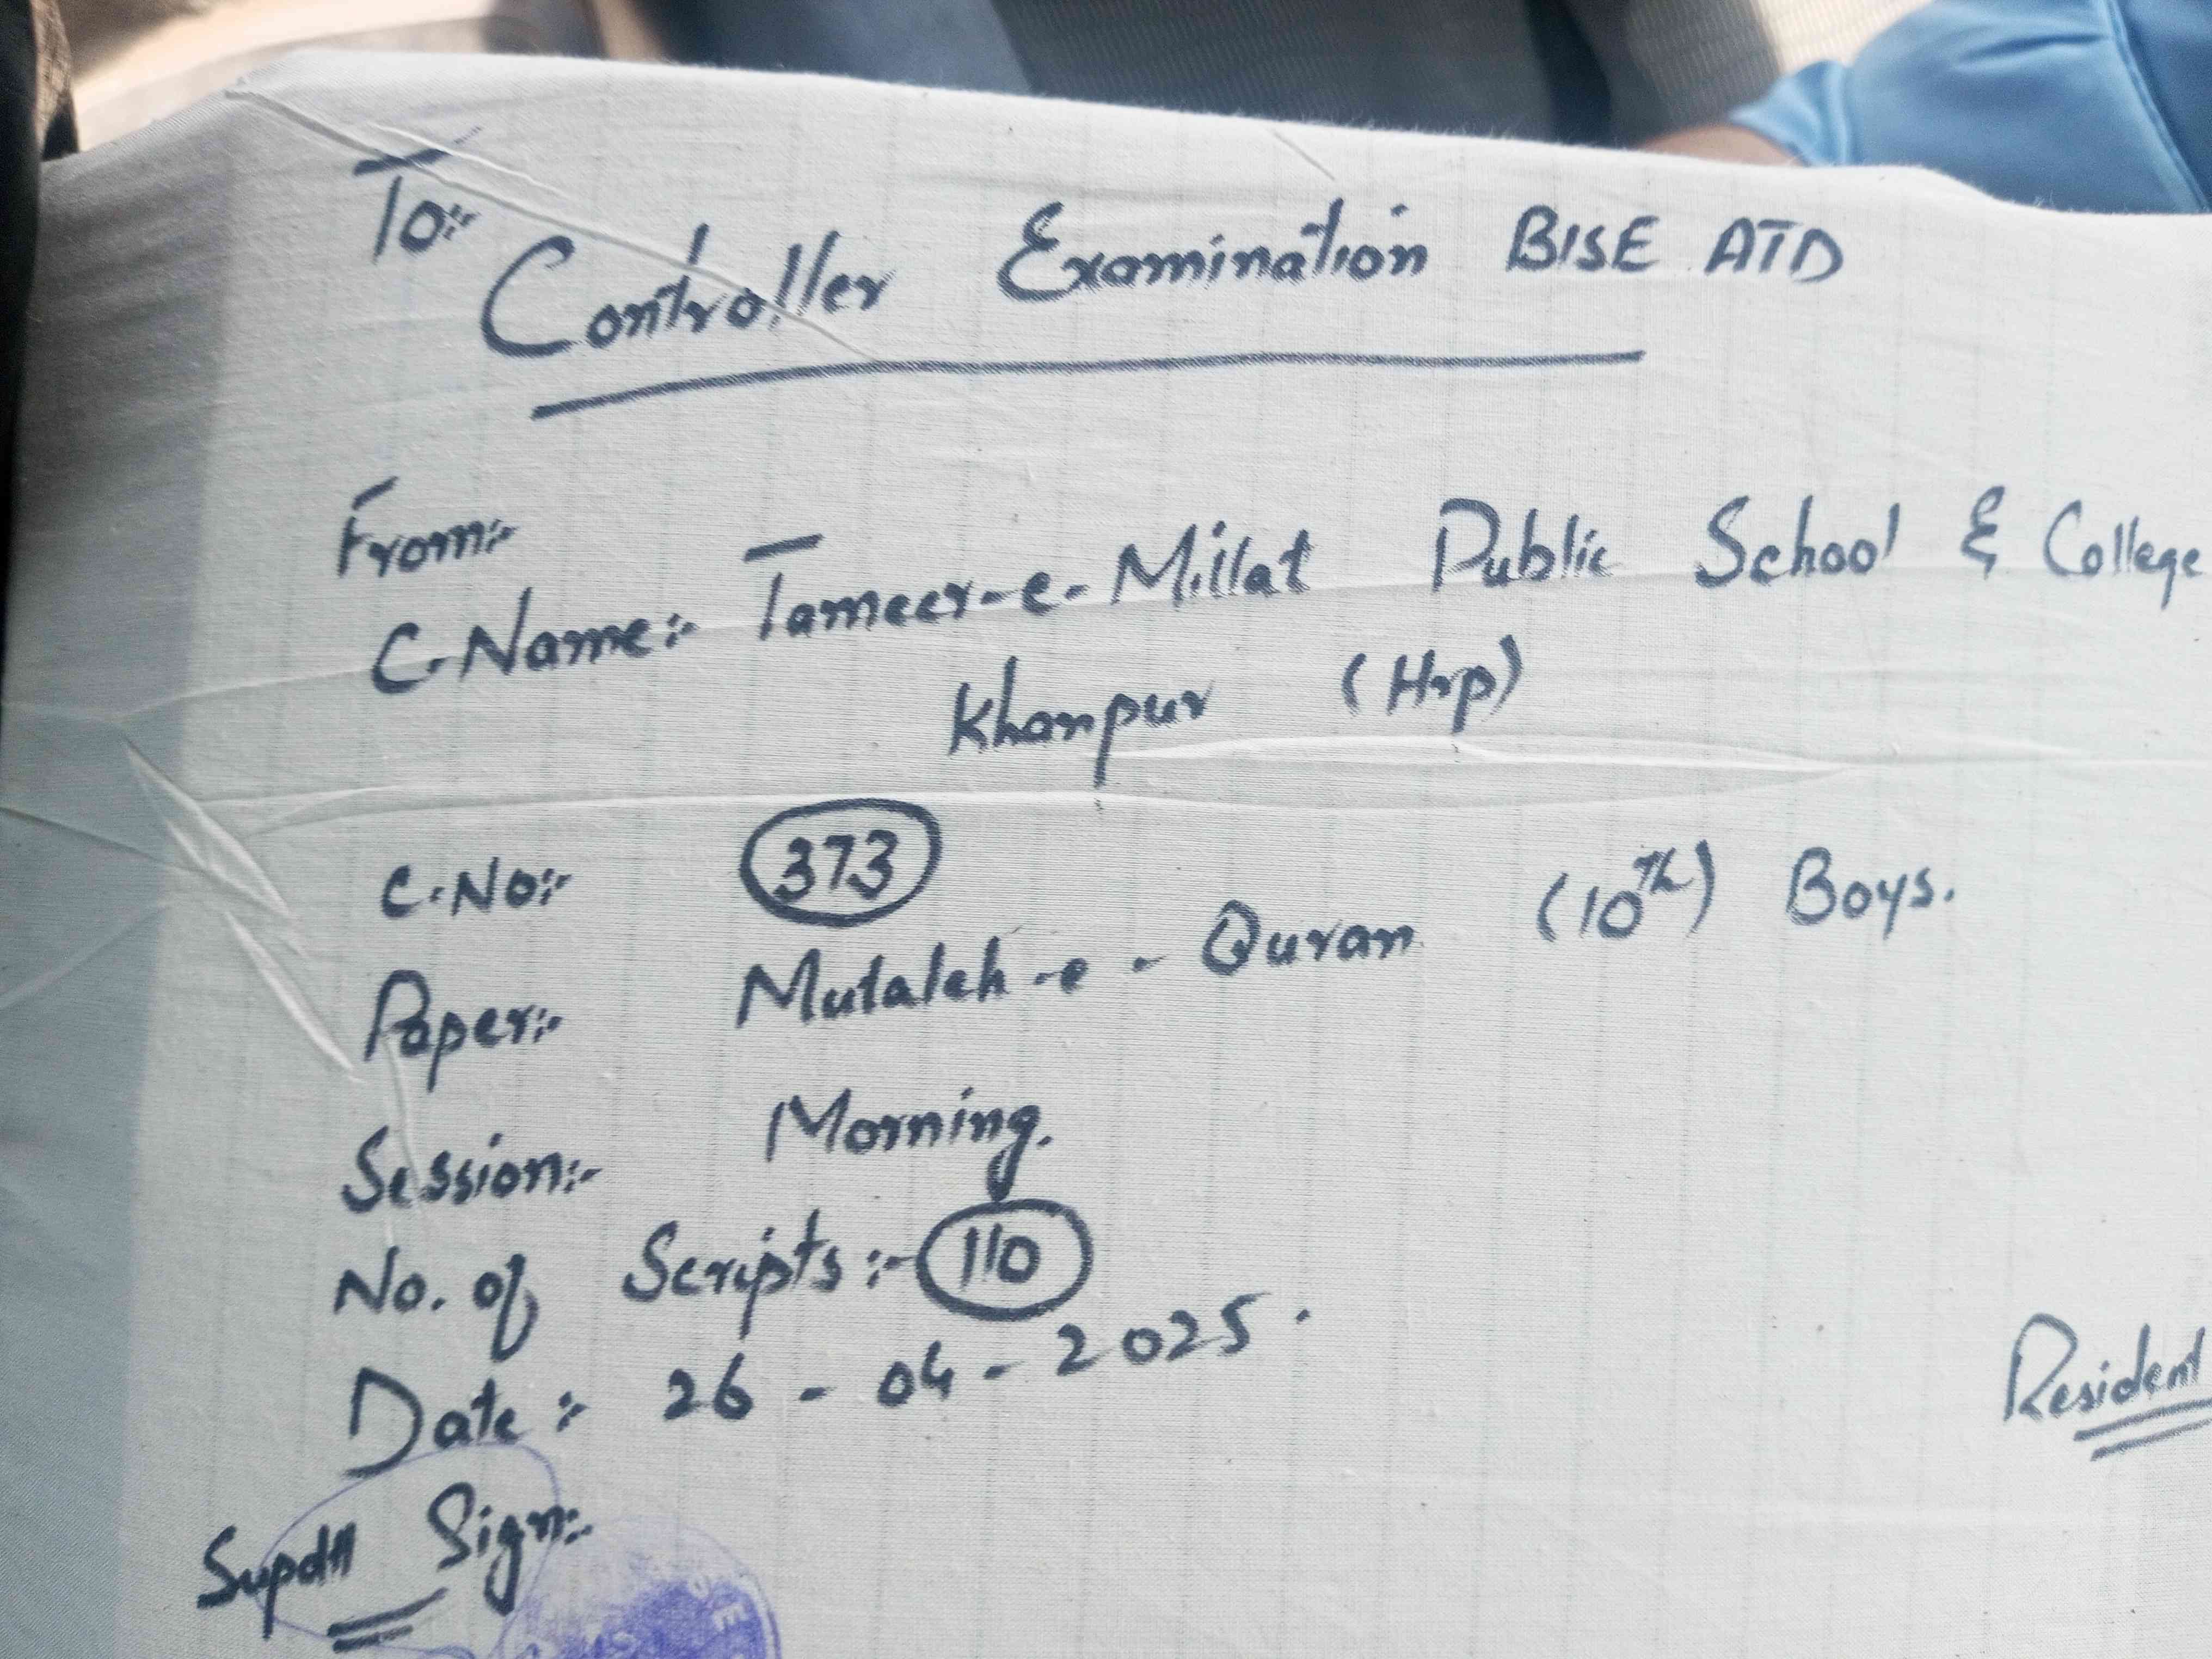 To:-
Controller Examination BISE ATD
From:-
C.Name:- Tameer-e-Millat Public School & College
Khanpur (Hrp)
C.No:- 373
Paper:- Mutaleh-e-Quran (10th) Boys.
Session:- Morning.
No. of Scripts:- 110
Date:- 26-04-2025.
Resident
Supdtt Sign:-